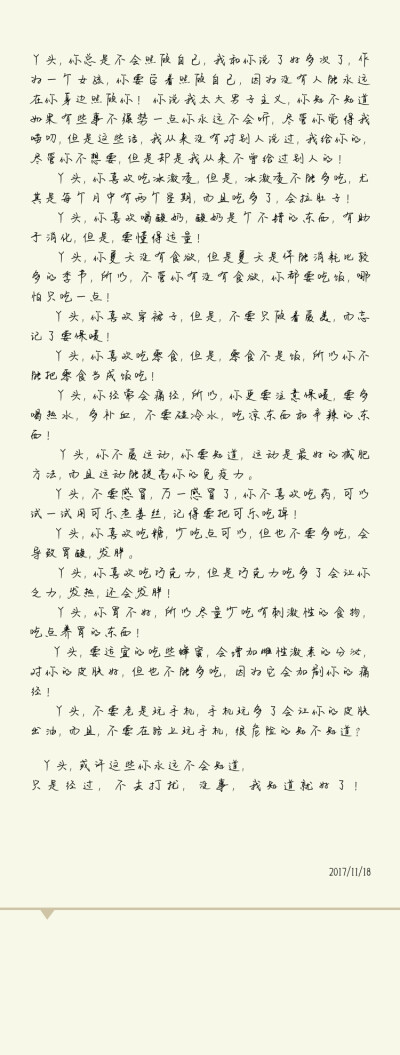 丫头,你总是不会照顾自己,我和你说了好多次了,作
为一个女孩,你要学着照顾自己,因为没有人能永远
在你身边照顾你!你说我太大男子主义,你知不知道
如果有些事不强势一点你永远不会听,尽管你觉得我
唠叨,但是这些话,我从来没有对别人说过,我给你的,
尽管你不想要,但是却是我从来不曾给过别人的!
丫头,你喜欢吃冰激凌,但是,冰激凌不能多吃,尤
其是每个月中有两个星期,而且吃多了,会拉肚子!
丫头,你喜欢喝酸奶,酸奶是个不错的东西,有助
于消化,但是,要懂得适量!
丫头,你夏天没有食欲,但是夏天是体能消耗比较
多的季节,所以,不管你有没有食欲,你都要吃饭,哪
怕只吃一点!
丫头,你喜欢穿裙子,但是,不要只顾着爱美,而忘
记了要保暖!
丫头,你喜欢吃零食,但是,零食不是饭,所以你不
能把零食当成饭吃!
丫头,你经常会痛经,所以,你更要注意保暖,要多
喝热水,多补血,不要碰冷水,吃凉东西和辛辣的东
西!
丫头,你不爱运动,你要知道,运动是最好的减肥
方法,而且运动能提高你的免疫力。
丫头,不要感冒,万一感冒了,你不喜欢吃药,可以
试一试用可乐煮姜丝,记得要把可乐吃掉!
丫头,你喜欢吃糖,少吃点可以,但也不要多吃,会
导致胃酸,发胖。
丫头,你喜欢吃巧克力,但是巧克力吃多了会让你
乏力,发热,还会发胖!
丫头,你胃不好,所以尽量少吃有刺激性的食物,
吃点养胃的东西!
丫头,要适宜的吃些蜂蜜,会增加雌性激素的分泌,
对你的皮肤好,但也不能多吃,因为它会加剧你的痛
经!
丫头,不要老是玩手机,手机玩多了会让你的皮肤
出油,而且,不要在路上玩手机,很危险的知不知道?
丫头,或许这些你永远不会知道,
只是经过,不去打扰,没事,我知道就好了!
2017/11/18